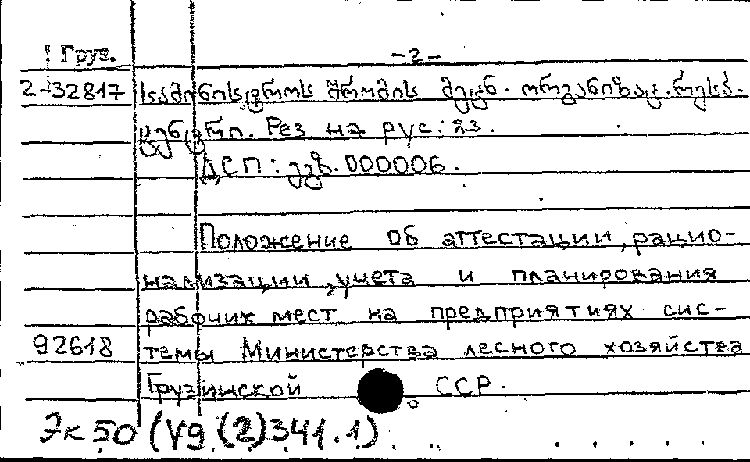 Груз. -2-
2-32817 სამინისტროს შრომის მეცნ. ორგანიზაც. რესპ.
ცენტრი. Рез на рус: 23.
ДСП: ეგზ. 000006.
Положение об аттестации, рацио-
нализации, учета и планирования
рабочих мест на предприятиях сис-
92618 темы Министерства лесного хозяйства
Грузинской ССР.
Эк50 (У9(2)341.1)